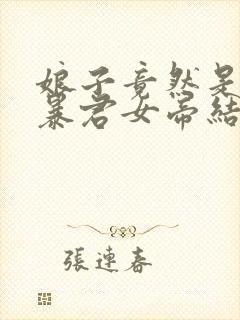 娘子竟然是
暴君女帝結
張連春